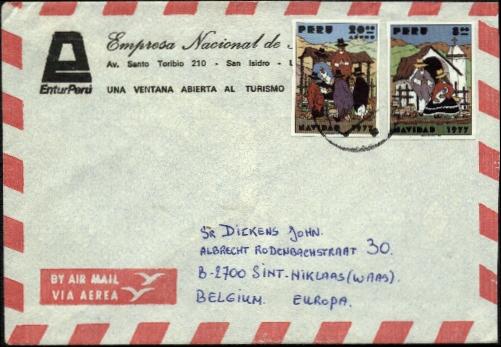 Empresa Nacional de
Av. Santo Toribio 210 - San Isidro - L
EnturPerú
UNA VENTANA ABIERTA AL TURISMO
PERU 20.00
AEREO
NAVIDAD 1977
PERU 8.00
NAVIDAD 1977
Sr DICKENS JOHN.
ALBRECHT RODENBACHSTRAAT 30.
B-2700 SINT-NIKLAAS (WAAS).
BELGIUM. EUROPA.
BY AIR MAIL
VIA AEREA